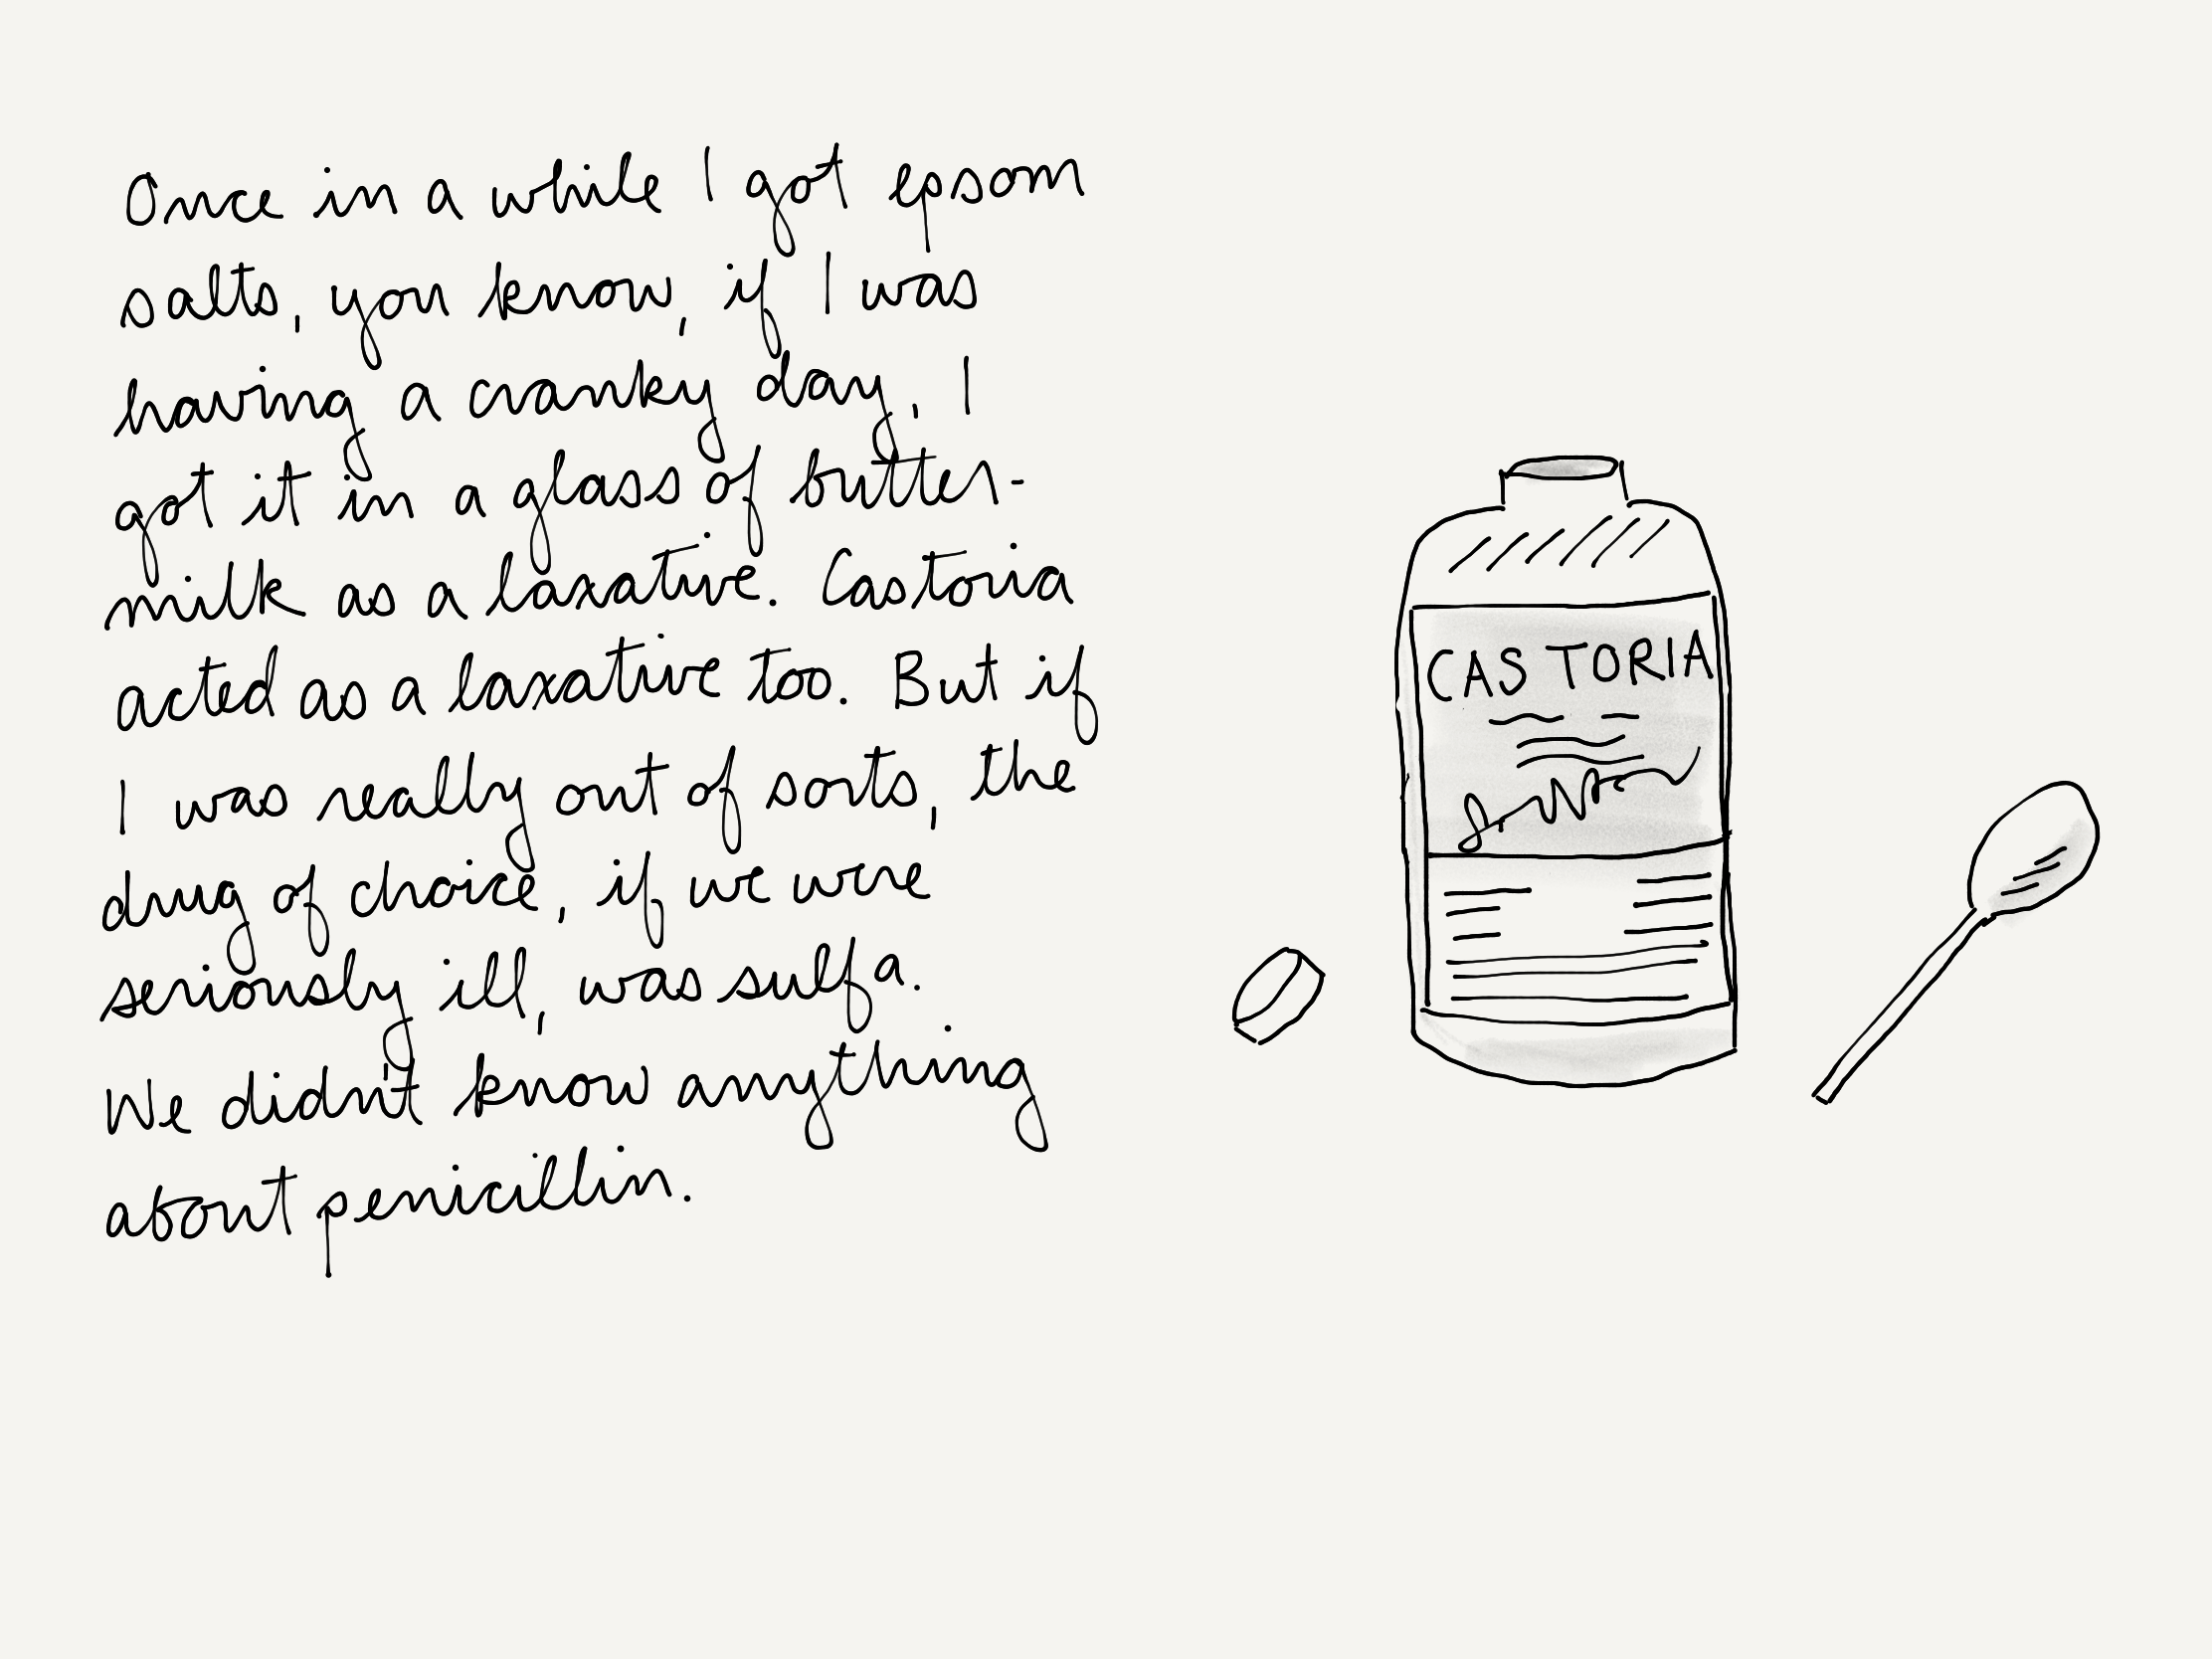 Once in a while I got epsom
salts, you know, if I was
having a cranky day, I
got it in a glass of butter-
milk as a laxative. Castoria
acted as a laxative too. But if
I was really out of sorts, the
drug of choice, if we were
seriously ill, was sulfa.
We didn't know anything
about penicillin.
CASTORIA